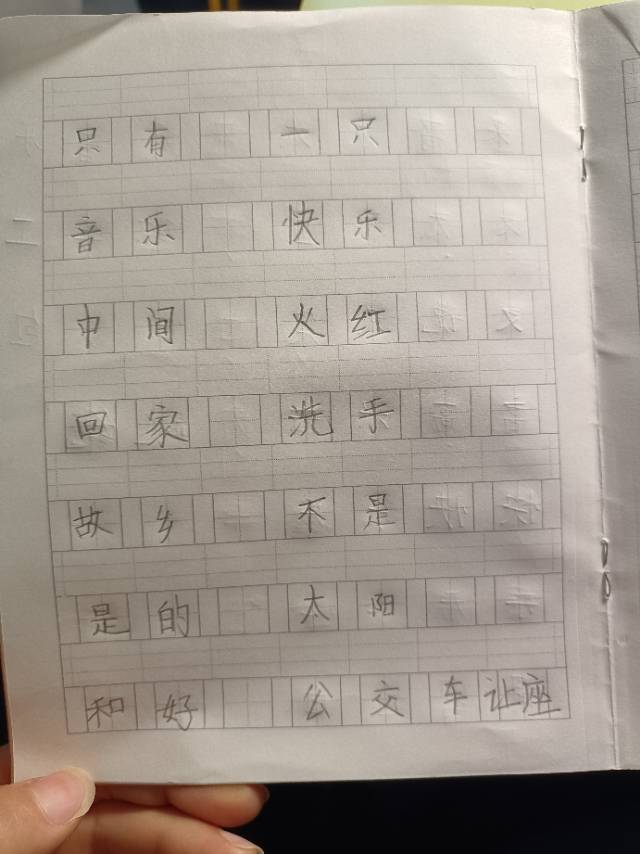 只有 一只
音乐 快乐
中间 火红
回家 洗手
故乡 不是
是的 太阳
和好 公交车让座